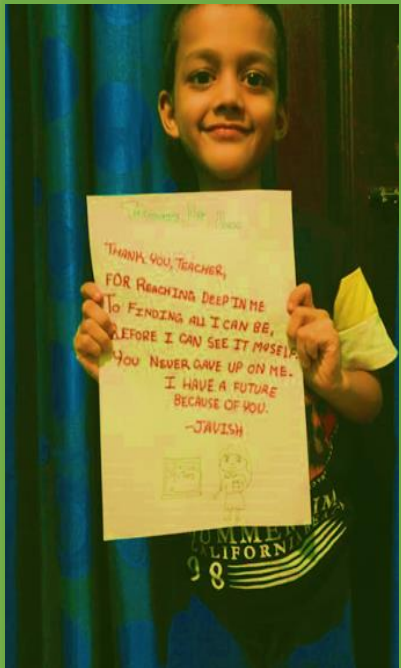 THANK YOU, TEACHER,
FOR REACHING DEEP IN ME
TO FINDING ALL I CAN BE,
BEFORE I CAN SEE IT MYSELF.
YOU NEVER GAVE UP ON ME.
I HAVE A FUTURE
BECAUSE OF YOU.
-JAVISH
UMMER
ALIFORN
98